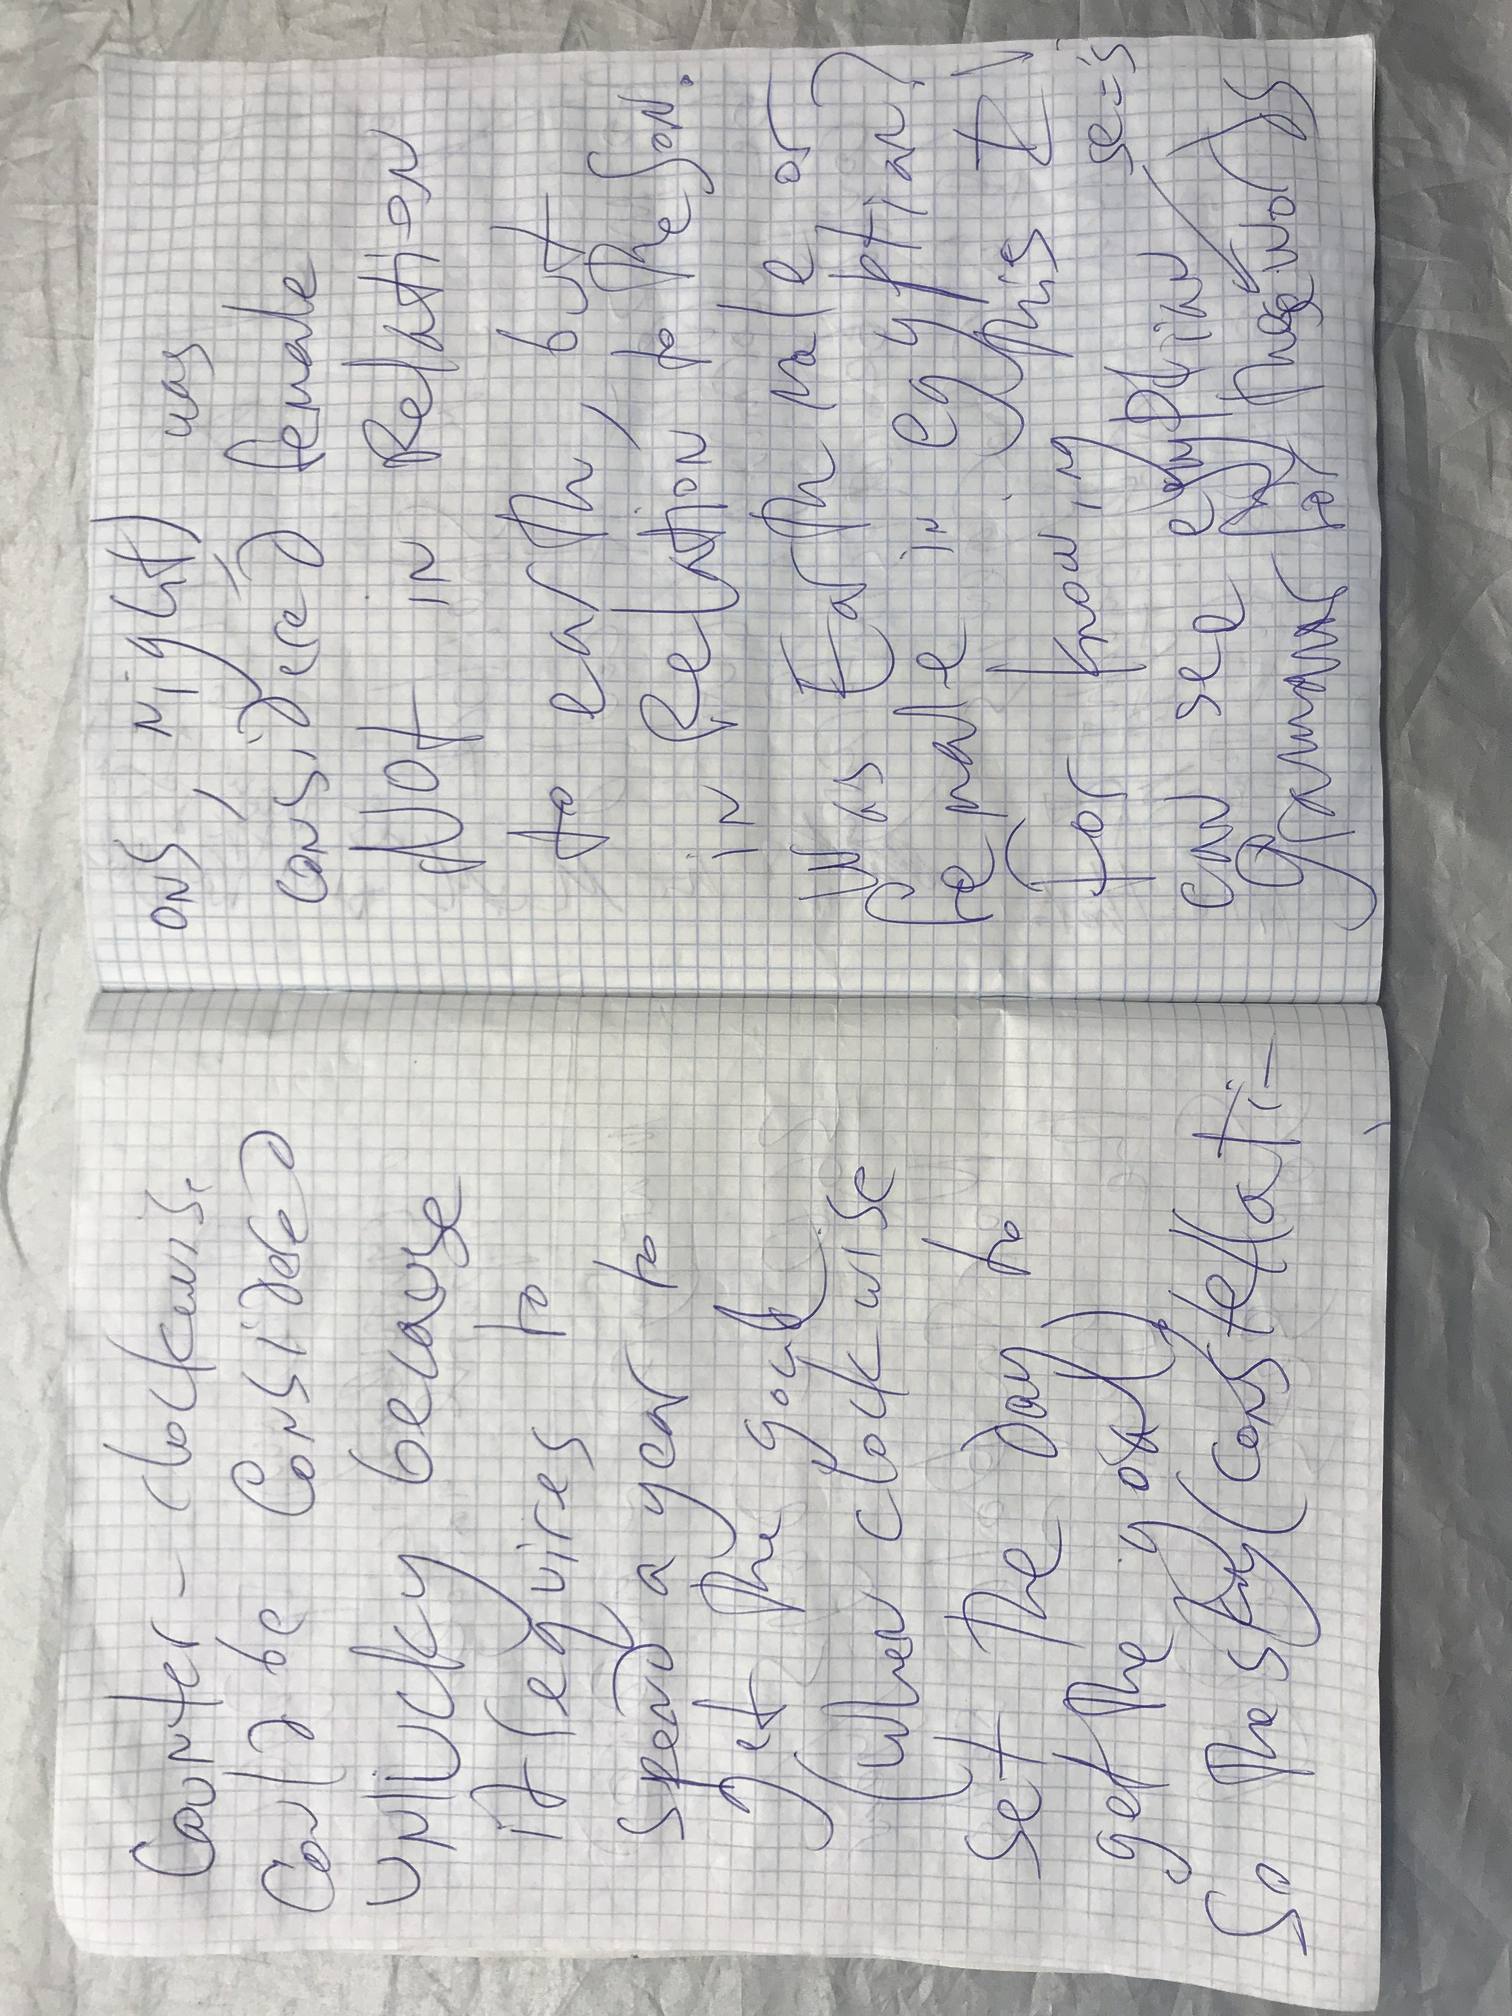 Counter-clockwis.
Could be Considered
UNlUCKy because
it requires to
spend a year to
get the goal
(when clockwise
set the day to
get the goal)
So the sky (constellati-
ons, night) was
considered female
Not in Relation
to earth, but
in Relation to the Son.
Was Earth male or
female in egyptian?
For knowing this I
can see egyptian se=s
grammar for these words